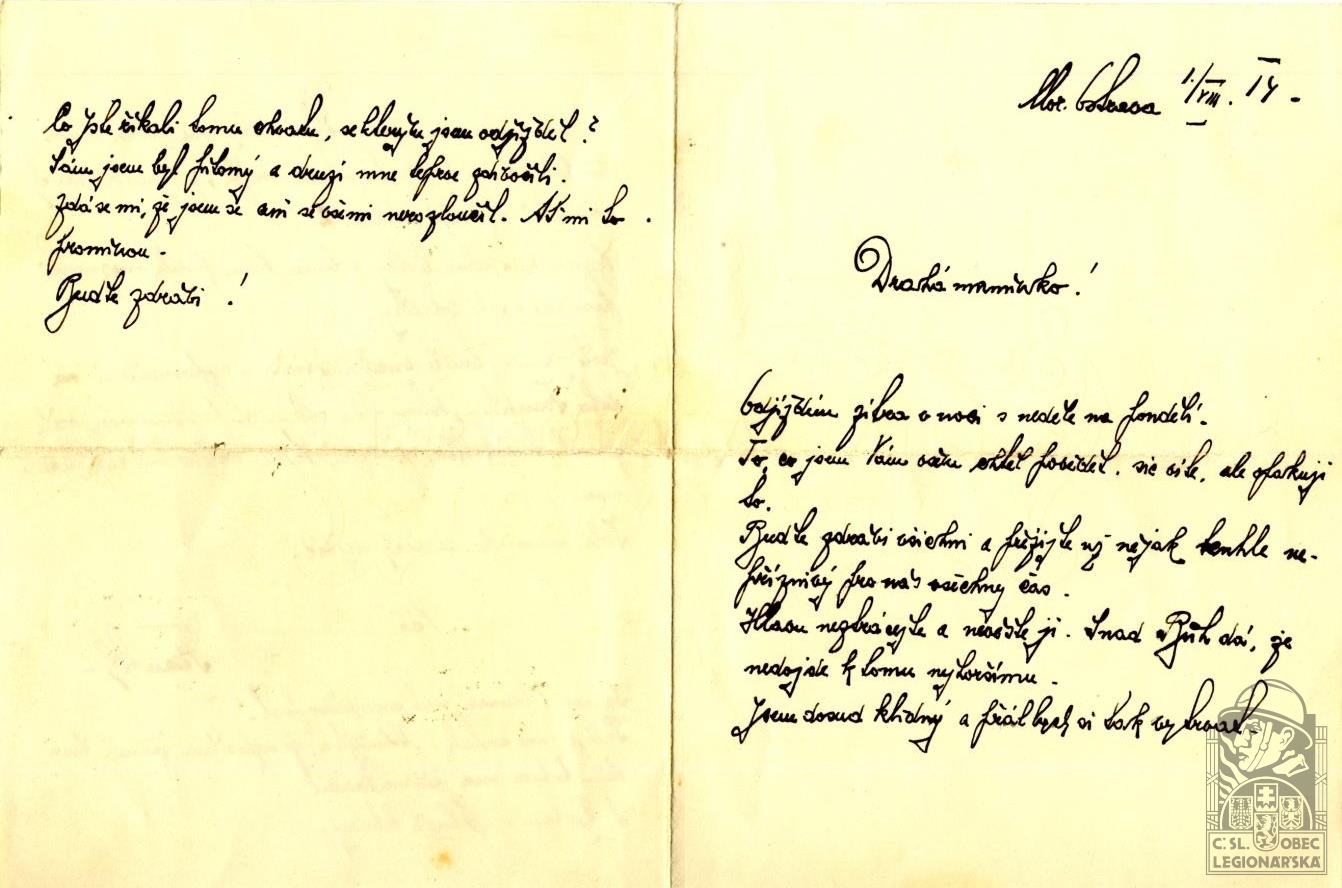 Co jste říkali tomu chvatu, se kterým jsem odjížděl?
Sám jsem byl přítomý a druzí mne teprve zdivočili.
Zdá se mi, že jsem se ani se všemi nerozloučil. Ať mi to
prominou.
Buďte zdrávi!
Mor. Ostrava 1./VIII. 14 -
Drahá maminko!
Odjíždím zítra v noci s neděle na pondělí.
To, co jsem Vám všem chtěl povědět, sic víte, ale opakuji
to.
Buďte zdrávi všichni a přežijte už nějak tenhle ne-
příznivý pro nás všechny čas.
Hlavu neztrácejte a nevěšte ji. Snad Bůh dá, že
nedojde k tomu nejhoršímu.
Jsem dosud klidný a přál bych si tak vytrvat.
Č. SL. OBEC
LEGIONÁŘSKÁ